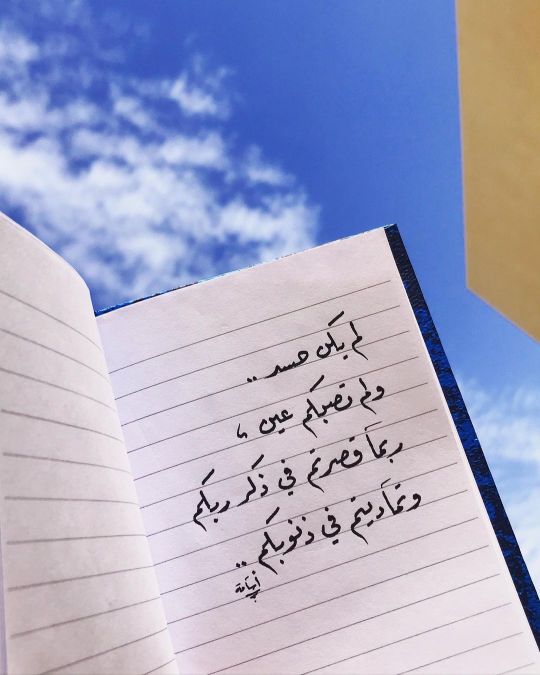 لم يكن حسد ..
ولم تصبكم عين ،
ربما قصرتم في ذكر ربكم
وتماديتم في ذنوبكم ..